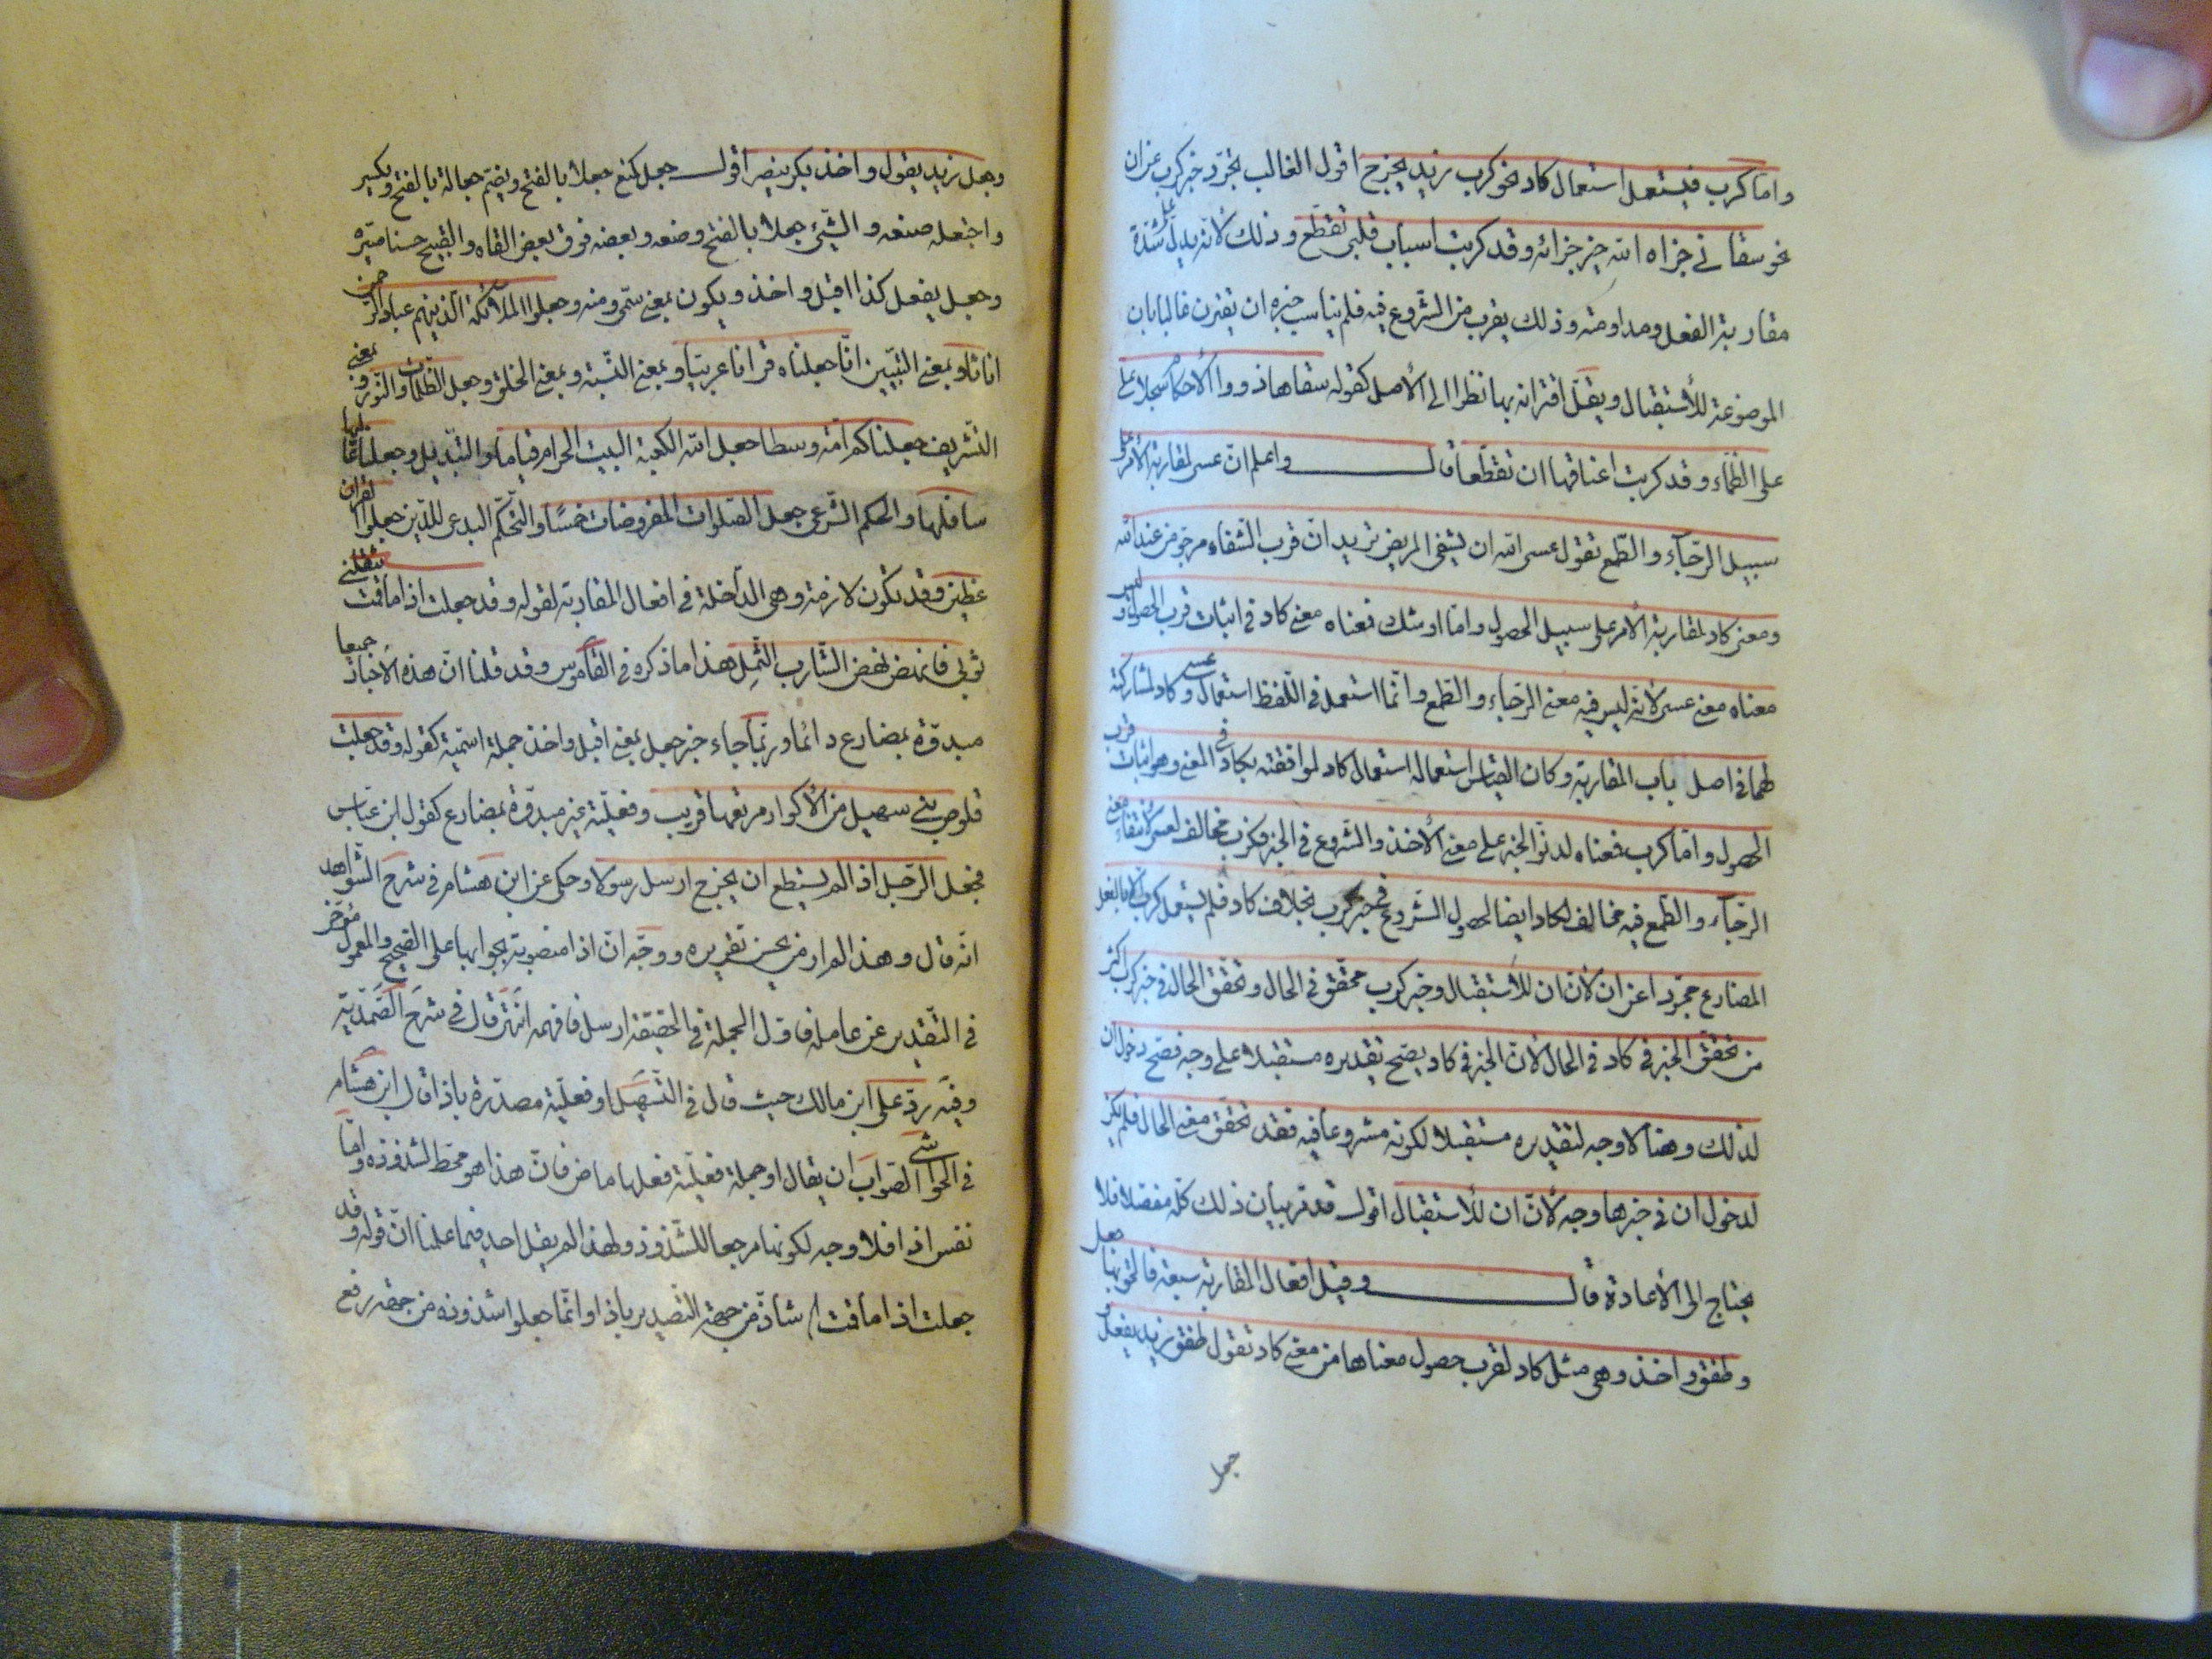 واما كرب فيستعمل استعمال كاد نحو كرب زيد يخرج اقول الغالب تجرّد خبر كرب عن ان
نحو سقاني جزاه الله خير جزائه وقد كربت اسباب قلبي تقطّع وذلك لانّه يدلّ على شدّة
مقاربة الفعل ومداومته وذلك يقرب من الشّروع فيه فلم يناسب خبره ان يقترن غالبا بان
الموضوعة للأستقبال ويقلّ اقترانه بها نظرا الى الأصل كقوله سقاها ذووا الأحلام سجلا على
على الظّماء وقد كربت اعناقها ان تقطّعا قال واعلم انّ عسى لمقاربة الأمر على
سبيل الرّجآء والطّمع تقول عسى الله ان يشفي المريض تريد انّ قرب الشّفاء مرجوّ من عند الله
ومعنى كاد لمقاربة الأمر على سبيل الحصول وامّا اوشك فمعناه معنى كاد في اثبات قرب الحصول وليس
معناه معنى عسى لأنّه ليس فيه معنى الرّجاء والطّمع وانّما استعمل في اللّفظ استعمال عسى وكاد لمشاركته
لهما في اصل باب المقاربة وكان القياس استعماله استعمال كاد لموافقته بكاد في المعنى وهو اثبات قرب
الحصول وامّا كرب فمعناه لدنوّ الخبر على معنى الأخذ والشّروع في الخبر فكرب مخالف لعسى لانتفاء معنى
الرّجآء والطّمع فيه مخالف لكاد ايضا لحصول الشّروع في خبر كرب بخلاف كاد فلم يستعمل كرب الا بالفعل
المضارع مجرّدا عن ان لأنّ ان للأستقبال وخبر كرب محقّق في الحال وتحقّق الحال في خبر كرب اكثر
من تحقّق الخبر في كاد في الحال لأنّ الخبر في كاد يصحّ تقديره مستقبلا على وجه فصحّ دخول ان
لذلك وهنا لا وجه لتقديره مستقبلا لكونه مشروعا فيه فقد تحقّق معنى الحال فلم يكن
لدخول ان في خبرها وجه لأنّ ان للأستقبال اقول قد مرّ بيان ذلك كلّه مفصّلا فلا
يحتاج الى الأعادة قال وقيل افعال المقاربة سبعة فالحق بها جعل
وطفق واخذ وهي مثل كاد لقرب حصول معناها من معنى كاد تقول طفق زيد يفعل و
جعل
وجعل زيد يقول واخذ بكر ينصر اقول جعل كمنع جعلا بالفتح ويضمّ جعالة بالفتح ويكسر
واجتعله صنعه والشّيئ جعلا بالفتح وضعه وبعضه فوق بعض القاه والقبيح حسنا صيّره
وجعل يفعل كذا اقبل واخذ ويكون بمعنى سمّى ومنه وجعلوا الملائكة الّذين هم عباد الرّحمن
اناثا وبمعنى التّبيين انّا جعلناه قرانا عربيّا وبمعنى النّسبة وبمعنى الخلق وجعل الظّلمات والنّور وبمعنى
التّشريف جعلناكم امّة وسطا جعل الله الكعبة البيت الحرام قياما والتّبديل وجعلنا عاليها
سافلها والحكم الشّرعي جعل الصّلوات المفروضات خمسًا والتّحكّم البدعى للّذين جعلوا القران
عظين وقد تكون لازمة وهي الدّاخلة في افعال المقاربة لقوله وقد جعلت اذا ما قمت يثقلني
ثوبي فانهض نهض الشّارب الثّمِل هذا ما ذكره في القاموس وقد قلنا انّ هذه الأخبار جميعا
مبدوّة بمضارع دائما وربّما جاء خبر جعل بمعنى اقبل واخذ جملة اسميّة كقوله وقد جعلت
قلوص بني سهيل من الأكوار مرتعها قريب وفعليّة غير مبدوّة بمضارع كقول ابن عبّاس
فجعل الرّجل اذا لم يستطع ان يخرج ارسل رسولا وحكى عن ابن هشام في شرح الشّواهد
انّه قال وهذا لم ار من يحسن تقريره ووجّه انّ اذا منصوبة بجوابها على الصّحيح والمعمول مؤخر
في التّقدير عن عامله فاوّل الجملة في الحقيقة ارسل فافهمه انتهى قال في شرح الصّمديّة
وفيه ردّ على ابن مالك حيث قال في التّسهيل او فعليّة مصدّرة باذا قال ابن هشام
في الحواشي الصّواب ان يقال او جملة فعليّة فعلها ماض فانّ هذا هو محطّ الشّذوذ وامّا
نفس اذا فلا وجه لكونها مرجعا للشّذوذ ولهذا لم يقل احد فيما علمنا انّ قوله وقد
جعلت اذا ما قمت شاذّ من جهة التّصدير باذا وانّما جعلوا شذوذه من جهة رفع